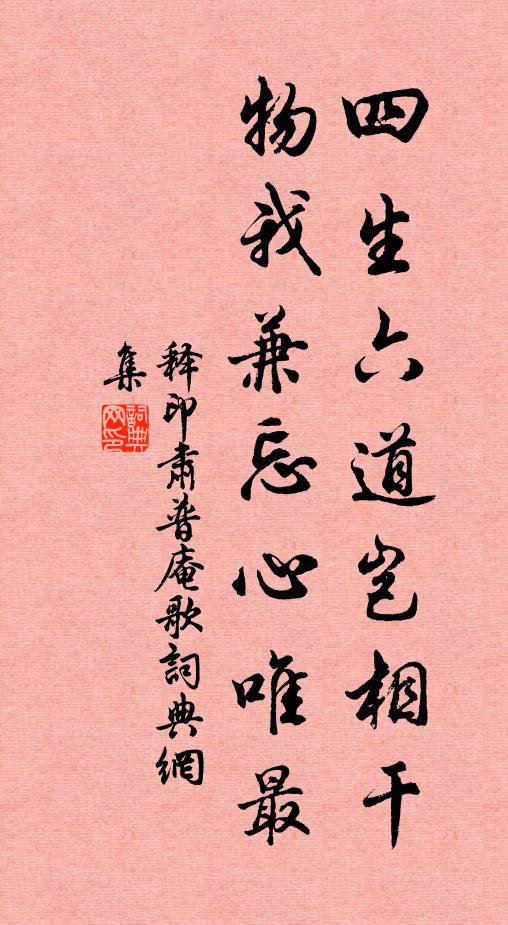 四生六道岂相干
物我兼忘心唯最
释印肃普庵歌詞典網
集
詞典网印